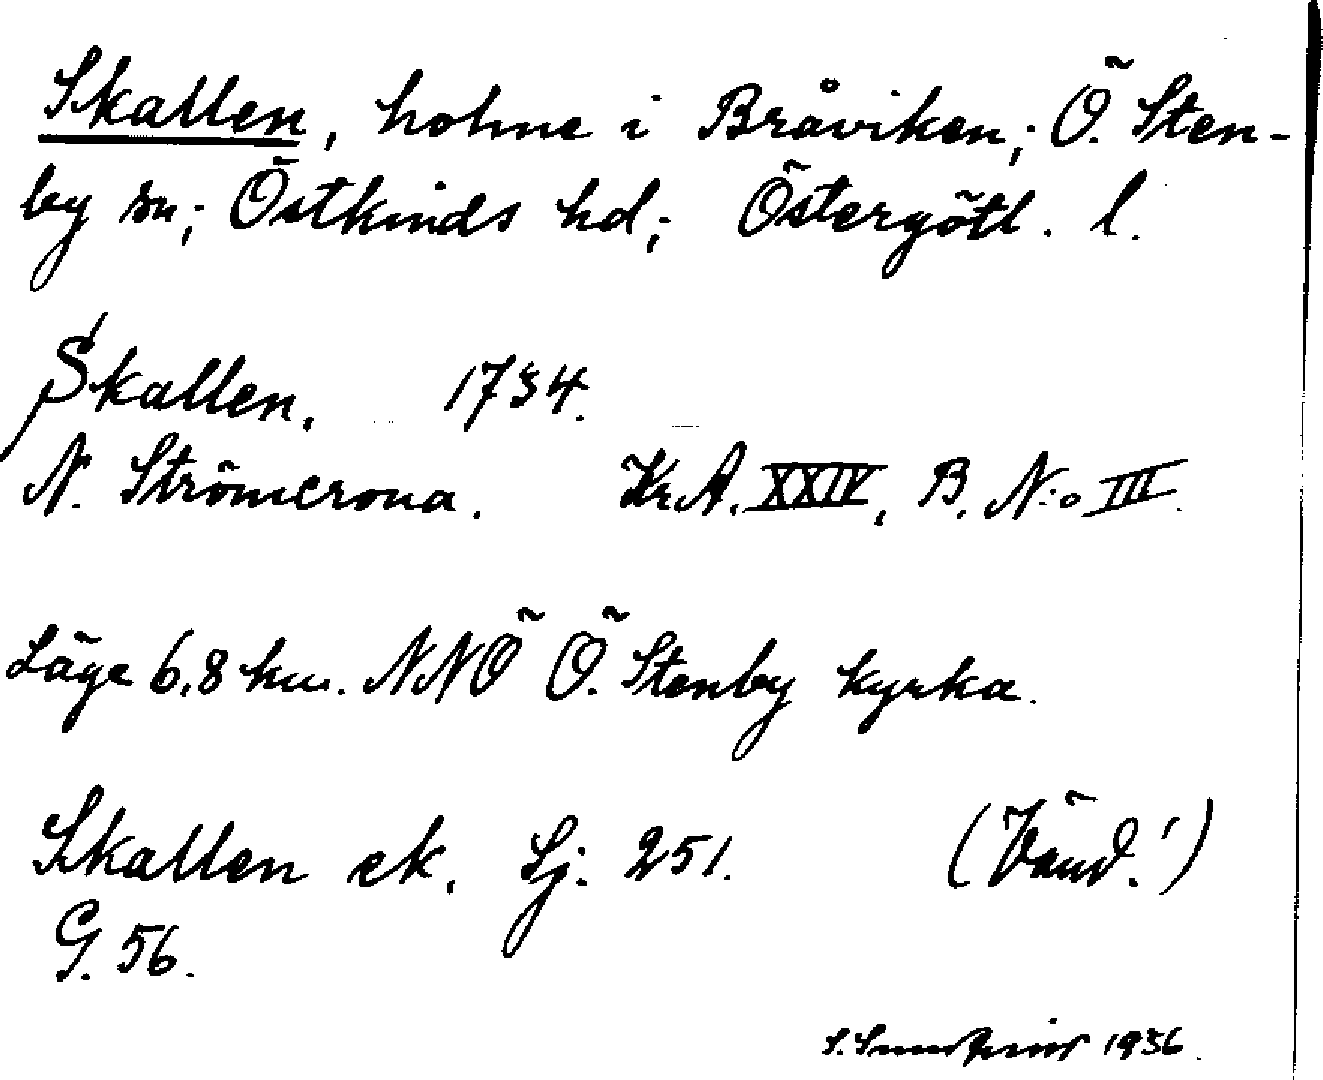 Skallen, holme i Bråviken; Ö. Sten-
by sn; Östkinds hd; Östergötl. l.
Skallen. 1734.
N. Strömcrona. Kr.A. XXIV, B. N:o III.
Läge 6,8 km. NNÖ Ö. Stenby kyrka.
Skallen ek. Sj. 251. (Vänd!)
G. 56.
S. 1936.